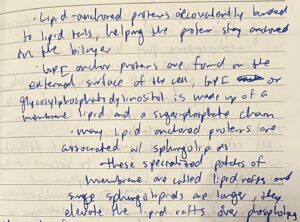 · Lipid-anchored proteins covalently bonded
to lipid tails, helping the protein stay anchored
in the bilayer
· GPI anchor proteins are found on the
external surface of the cell, GPI or
glycosylphosphatidylinositol is made up of a
membrane lipid and a sugar-phosphate chain
· many lipid anchored proteins are
associated w/ sphingolipids
→ these specialized patches of
membrane are called lipid rafts and
sphingolipids are larger, they
elevate the lipid rafts over